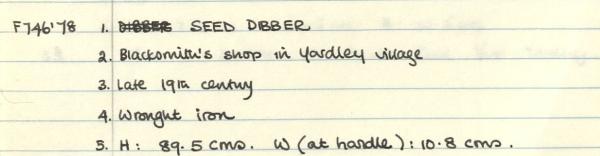 F746'78 1. DIBBER SEED DIBBER
2. Blacksmith's shop in Yardley village
3. Late 19th century
4. Wrought iron
5. H: 89.5 cms. W (at handle): 10.8 cms.